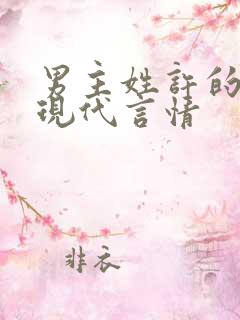 男主姓許的
現代言情
非衣